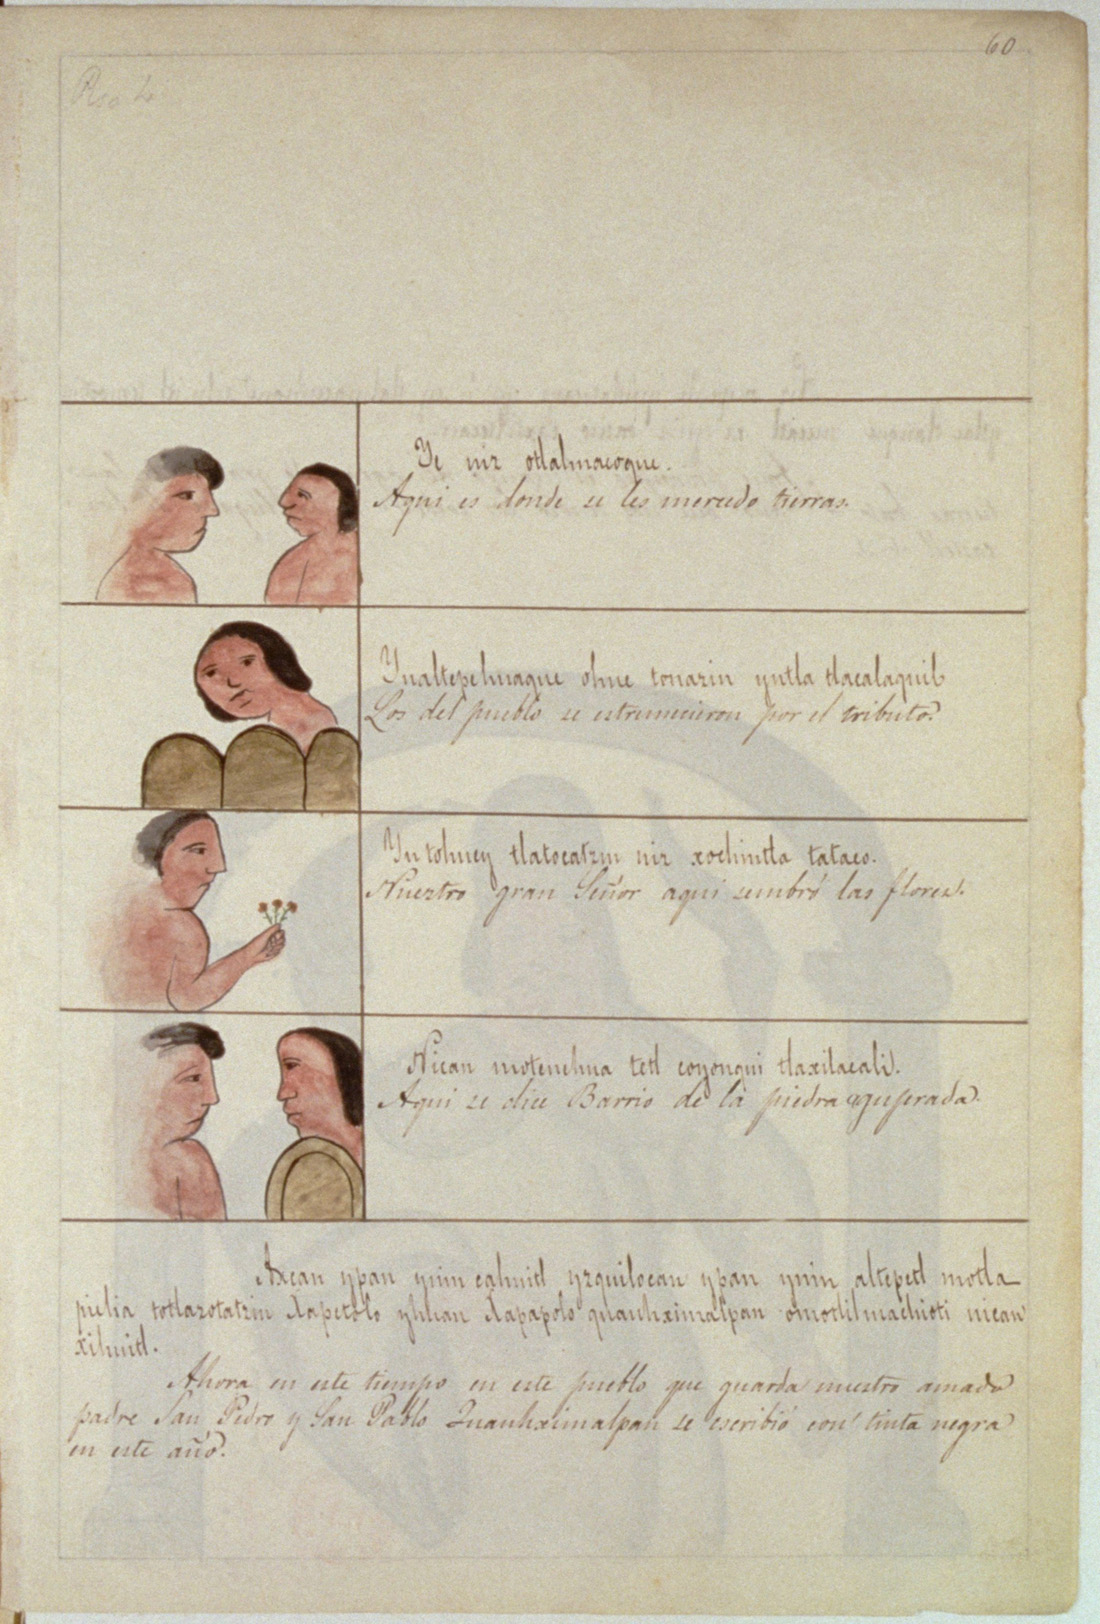 60
Ye niz otlalmacoque.
Aqui es donde se les mercedo tierras.
Ynaltepehuaque ohue tonazin yntla tlacalaquil
Los del pueblo se estrumecieron por el tributo.
Yntohuey tlatocatzin niz xochintla tataco.
Nuestro gran Señor aqui sembró las flores.
Nican motenehua tetl coyonqui tlaxilacali.
Aqui se dice Barrio de la piedra agujerada.
Axcan ypan ynin cahuitl yzquilocan ypan ynin altepetl motla
pielia totlazotatzin Xapetolo yhuan Xapapolo quauhximalpan omotlilmachioti nican
xihuitl.
Ahora en este tiempo en este pueblo que guarda nuestro amado
padre San Pedro y San Pablo Quauhximalpan se escribió con tinta negra
en este año.